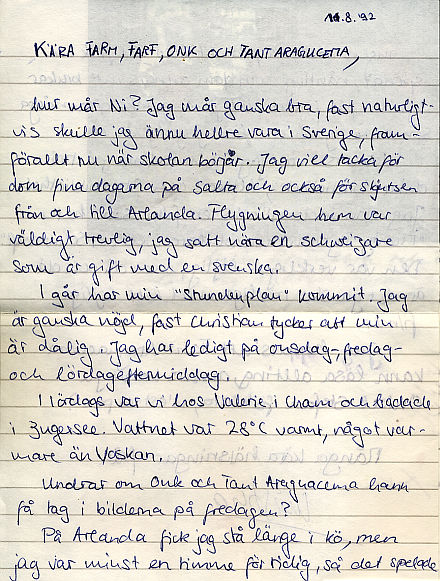 11.8.92
KÄRA FARM, FARF, ONK OCH TANT ARAGUCEMA,
hur mår Ni? Jag mår ganska bra, fast naturligt-
vis skulle jag ännu hellre vara i Sverige, fram-
förallt nu när skolan börjar. Jag vill tacka för
dom fina dagarna på Salta och också för skjutsen
från och till Arlanda. Flygningen hem var
väldigt trevlig, jag satt nära en schweizare
som är gift med en svenska.
I går har min "Stundenplan" kommit. Jag
är ganska nöjd, fast Christian tycker att min
är dålig. Jag har ledigt på onsdag-, fredag-
och lördageftermiddag.
I lördags var vi hos Valerie i Cham och badade
i Zugersee. Vattnet var 28°C varmt, något var-
mare än Vaskan.
Undrar om Onk och Tant Araguacema hann
få tag i bilderna på fredagen?
På Arlanda fick jag stå länge i kö, men
jag var minst en timme för tidig, så det spelade